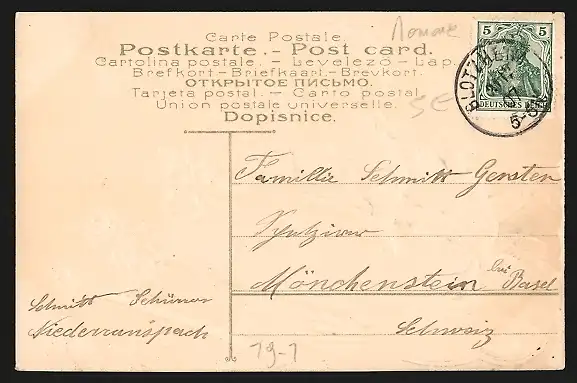 Carte Postale.
Postkarte. - Post card.
Cartolina postale. - Levelező - Lap.
Brefkort - Briefkaart. - Brevkort.
ОТКРЫТОЕ ПИСЬМО.
Tarjeta postal. - Carto postal.
Union postale universelle.
Dopisnice.
5 5
DEUTSCHES REICH
BLOTZHEIM
5-6
SE
Familie Schmitt Gersten
Mönchenstein bei Basel
Schweiz
Schmitt Schürrer
Niederranspach
79-1